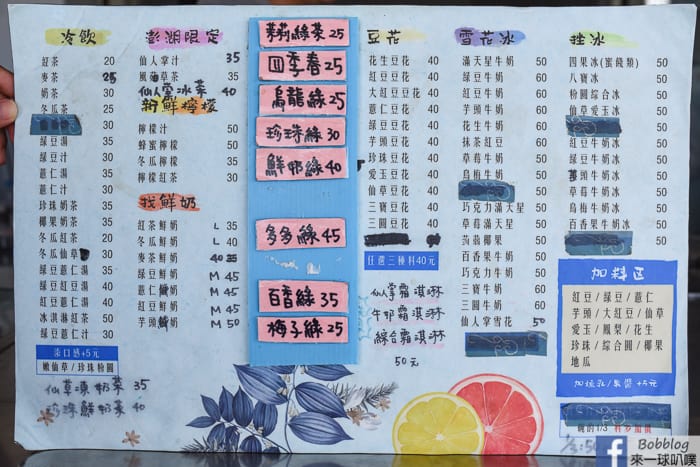 冷飲
紅茶 20
麥茶 25
奶茶 25
冬瓜茶 25
綠豆湯 35
綠豆汁 30
薏仁湯 35
薏仁汁 30
珍珠奶茶 35
椰果奶茶 35
冬瓜紅茶 20
冬瓜仙草 30
綠豆薏仁湯 35
綠豆紅豆湯 40
紅豆薏仁湯 40
冰淇淋紅茶 50
綠豆椰果 30
柒口感+5元
嫩仙草/珍珠粉圓
仙草凍奶茶 35
珍珠鮮奶茶 40
澎湖限定
仙人掌汁 35
風茹草茶 35
仙人掌冰茶 40
新鮮檸檬
檸檬汁 50
蜂蜜檸檬 50
冬瓜檸檬 50
檸檬紅茶 50
找鮮奶
紅茶鮮奶 L 35
冬瓜鮮奶 L 40
麥茶鮮奶
綠豆鮮奶 M 45
薏仁鮮奶 M 45
紅豆鮮奶 M 45
芋頭鮮奶 M 50
茉莉綠茶25
四季春25
烏龍綠25
珍珠綠30
鮮奶綠40
多多綠45
百香綠35
梅子綠25
豆花
花生豆花 40
紅豆豆花 40
大紅豆豆花 40
薏仁豆花 40
綠豆豆花 40
芋頭豆花 40
珍珠豆花 40
愛玉豆花 40
仙草豆花 40
三寶豆花 40
三圓豆花 40
任選三種料40元
仙人掌霜淇淋
牛奶霜淇淋
綜合霜淇淋
50元
雪花冰
滿天星牛奶 60
紅豆牛奶 60
芋頭牛奶 60
花生牛奶 60
抹茶紅豆 60
草莓牛奶 60
烏梅牛奶 60
巧克力滿天星 60
草莓滿天星 60
蒟蒻椰果 60
百香果牛奶 60
巧克力牛奶 60
三寶牛奶 60
三圓牛奶 60
仙人掌雪花 50
挫冰
四果冰(蜜餞類) 50
八寶冰 50
粉圓綜合冰 50
仙草愛玉冰 50
紅豆牛奶冰 50
綠豆牛奶冰 50
芋頭牛奶冰 50
草莓牛奶冰 50
烏梅牛奶冰 50
百香果牛奶冰 50
加料區
紅豆/綠豆/薏仁
芋頭/大紅豆/仙草
愛玉/鳳梨/花生
珍珠/綜合圓/椰果
地瓜
Bobblog
來一球叭噗